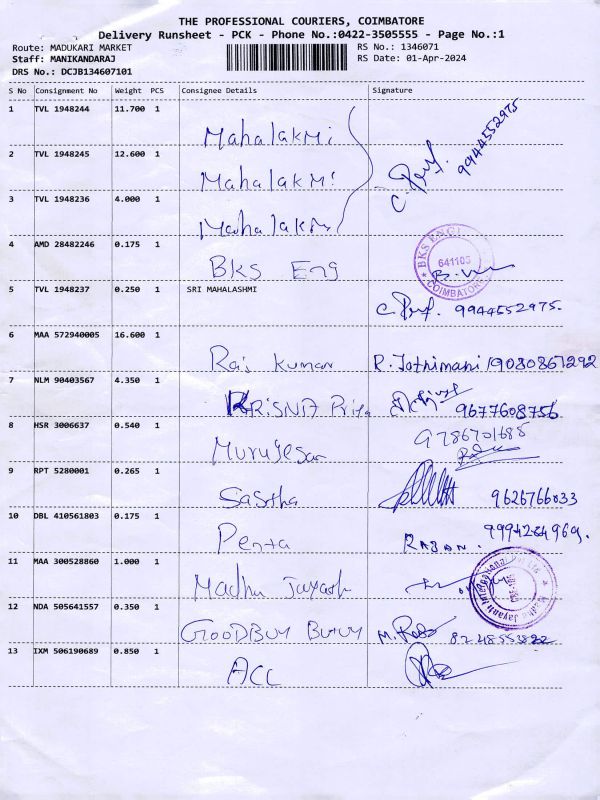 THE PROFESSIONAL COURIERS, COIMBATORE
Delivery Runsheet - PCK - Phone No.:0422-3505555 - Page No.:1
Route: MADUKARI MARKET RS No.: 1346071
Staff: MANIKANDARAJ RS Date: 01-Apr-2024
DRS No.: DCJB134607101
S No Consignment No Weight PCS Consignee Details Signature
1 TVL 1948244 11.700 1 Mahalakmi
9944552975
2 TVL 1948245 12.600 1 Mahalakmi
3 TVL 1948236 4.000 1 Mahalakmi
4 AMD 28482246 0.175 1 BKS Eng
BKS ENGI
641105
COIMBATORE
5 TVL 1948237 0.250 1 SRI MAHALASHMI
9944552975.
6 MAA 572940005 16.600 1 Raj kumar R. Jothimani 19080867292
7 NLM 90403567 4.350 1 KRISNA Priya 9677608756
8 HSR 3006637 0.540 1 Murugesan 9786701685
9 RPT 5280001 0.265 1 Sastha 9626766033
10 DBL 410561803 0.175 1 Penta RAJAN. 9994284969.
11 MAA 300528860 1.000 1 Madhu Jayash
12 NDA 505641557 0.350 1 GOODBUY 8248553822
13 IXM 506190689 0.850 1 ACC